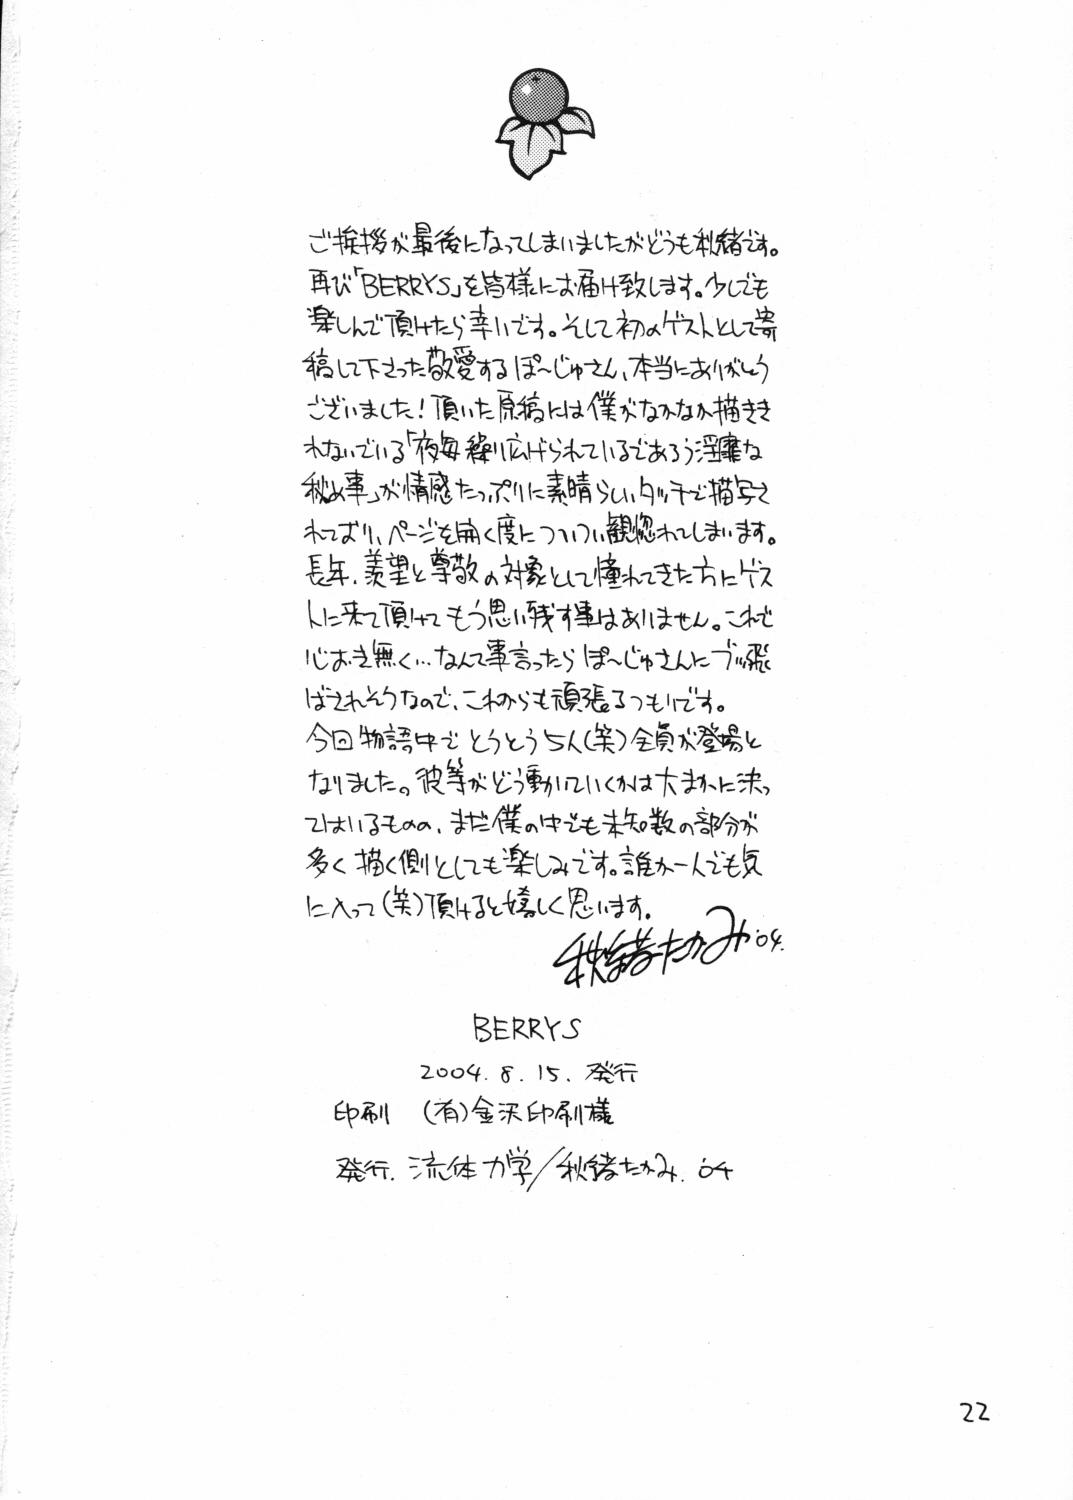 ご挨拶が最後になってしまいましたがどうも秋緒です。
再び「BERRYS」を皆様にお届け致します。少しでも
楽しんで頂けたら幸いです。そして初のゲストとして寄
稿して下さった敬愛するぽ〜じゅさん、本当にありがとう
ございました!頂いた原稿には僕がなかなか描きき
れないでいる「夜毎繰り広げられているであろう淫靡な
秘め事」が情感たっぷりに素晴らしいタッチで描写さ
れており、ページを開く度についつい観惚れてしまいます。
長年、羨望と尊敬の対象として憧れてきた方にゲス
トに来て頂けてもう思い残す事はありません。これで
心おき無く…なんて事言ったらぽ〜じゅさんにブッ飛
ばされそうなので、これからも頑張るつもりです。
今回物語中でとうとう5人(笑)全員が登場と
なりました。彼等がどう動いていくかは大まかに決っ
てはいるものの、まだ僕の中でも未知数の部分が
多く描く側としても楽しみです。誰か一人でも気
に入って(笑)頂けると嬉しく思います。
秋緒たかみ '04.
BERRYS
2004.8.15.発行
印刷 (有)金沢印刷様
発行.流体力学/秋緒たかみ.'04
22